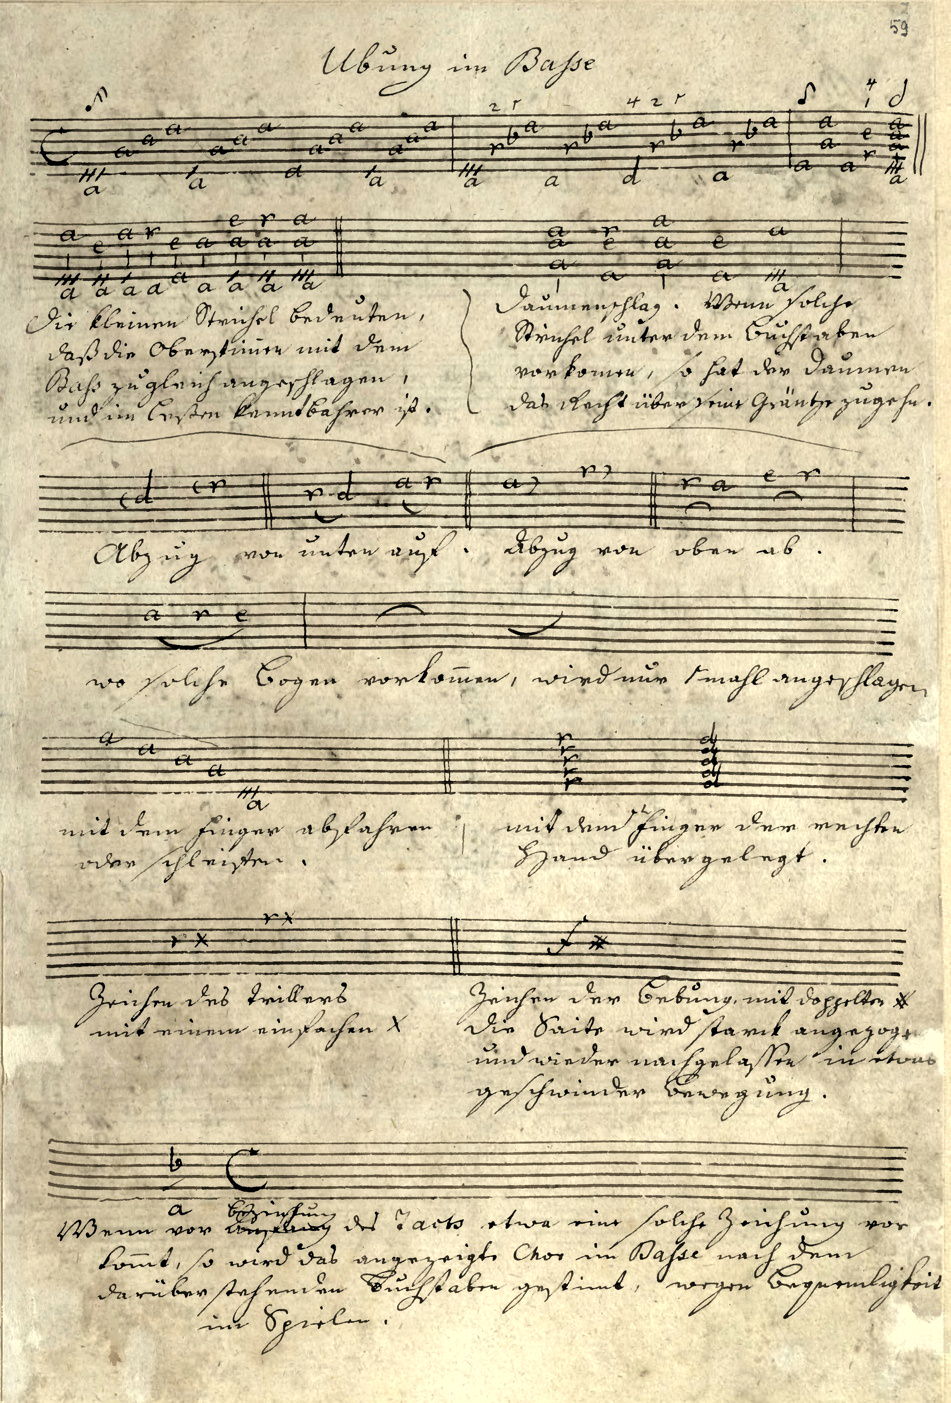 59
Ubung im Basse
Die kleinen Strichel bedeuten,
daß die Oberstim̄en mit dem
Bass zugleich angeschlagen,
und im Lesten kenntbahrer ist.
Daumenschlag. Wenn solche
Strichel unter dem Buchstaben
vorkomen, so hat der Daumen
das Recht über seine Gräntze zugehn.
Abzug von unten auf. Abzug von oben ab.
wo solche Bogen vorkom̄en, wird nur 1 mahl angeschlagen
mit dem Finger abfahren
oder schleiffen.
mit dem Finger der rechten
Hand übergelegt.
Zeichen des Trillers
mit einem einfachen X
Zeichen der Bebung. mit doppelten
die Saite wird starck angezogen
und wieder nachgelassen in etwas
geschwinder Bewegung.
Wenn vor des Tacts etwa eine solche Zeichung vor
kom̄t, so wird das angezeigte Chor im Basse nach dem
darüber stehenden Buchstaben gestimt, wegen Bequemligkeit
im Spielen.